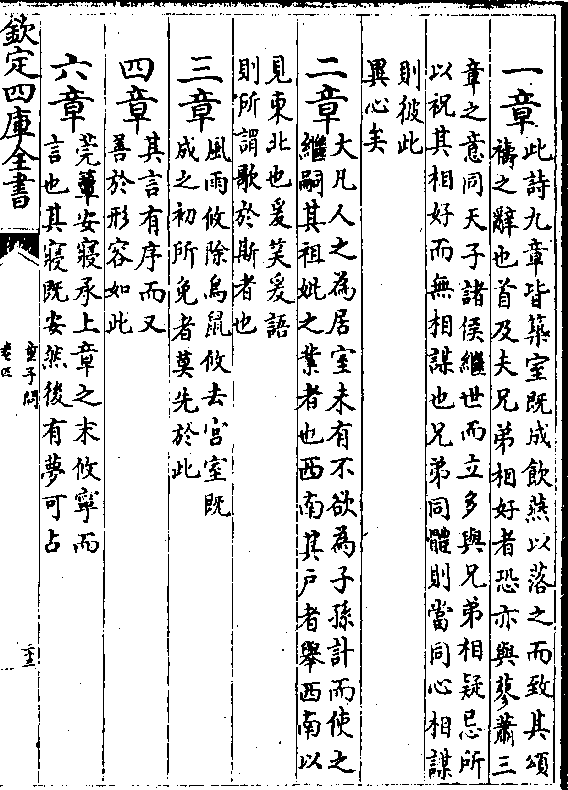 一章此詩九章皆築室既成飲燕以落之而致其頌
禱之辭也首及夫兄弟相好者恐亦與蓼蕭三
章之意同天子諸侯繼世而立多與兄弟相疑忌所
以祝其相好而無相謀也兄弟同體則當同心相謀
則彼此
異心矣
二章大凡人之為居室未有不欲為子孫計而使之
繼嗣其祖妣之業者也西南其戶者舉西南以
見東北也爰笑爰語
則所謂歌於斯者也
三章風雨攸除鳥鼠攸去宮室既
成之初所免者莫先於此
四章其言有序而又
善於形容如此
六章莞簟安寢承上章之末攸寧而
言也其寢既安然後有夢可占
欽定四庫全書
童子問
卷四